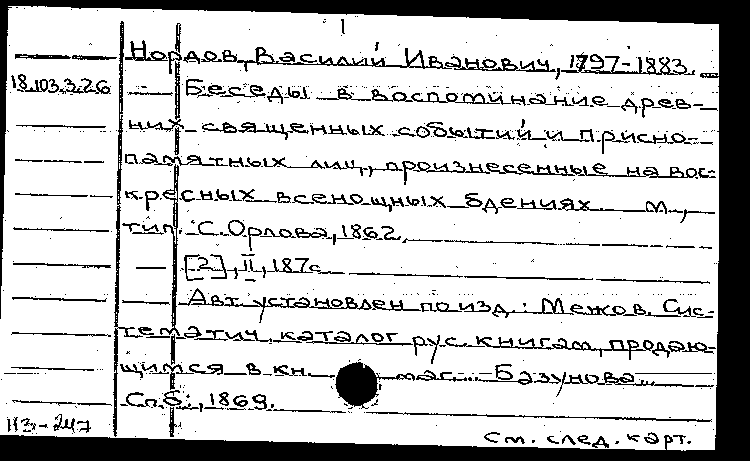 1
Нордов, Василий Иванович, 1797-1883.
18.103.3.26 Беседы в воспоминание древ-
них священных событий и присно-
памятных лиц, произнесенные на вос-
кресных всенощных бдениях. М.,
тип. С. Орлова, 1862.
[2], II, 187с.
Авт. установлен по изд.: Межов. Сис-
тематич. каталог рус. книгам, продаю-
щимся в кн. маг... Базунова...
Спб., 1869.
ИЗ-247
См. след. карт.